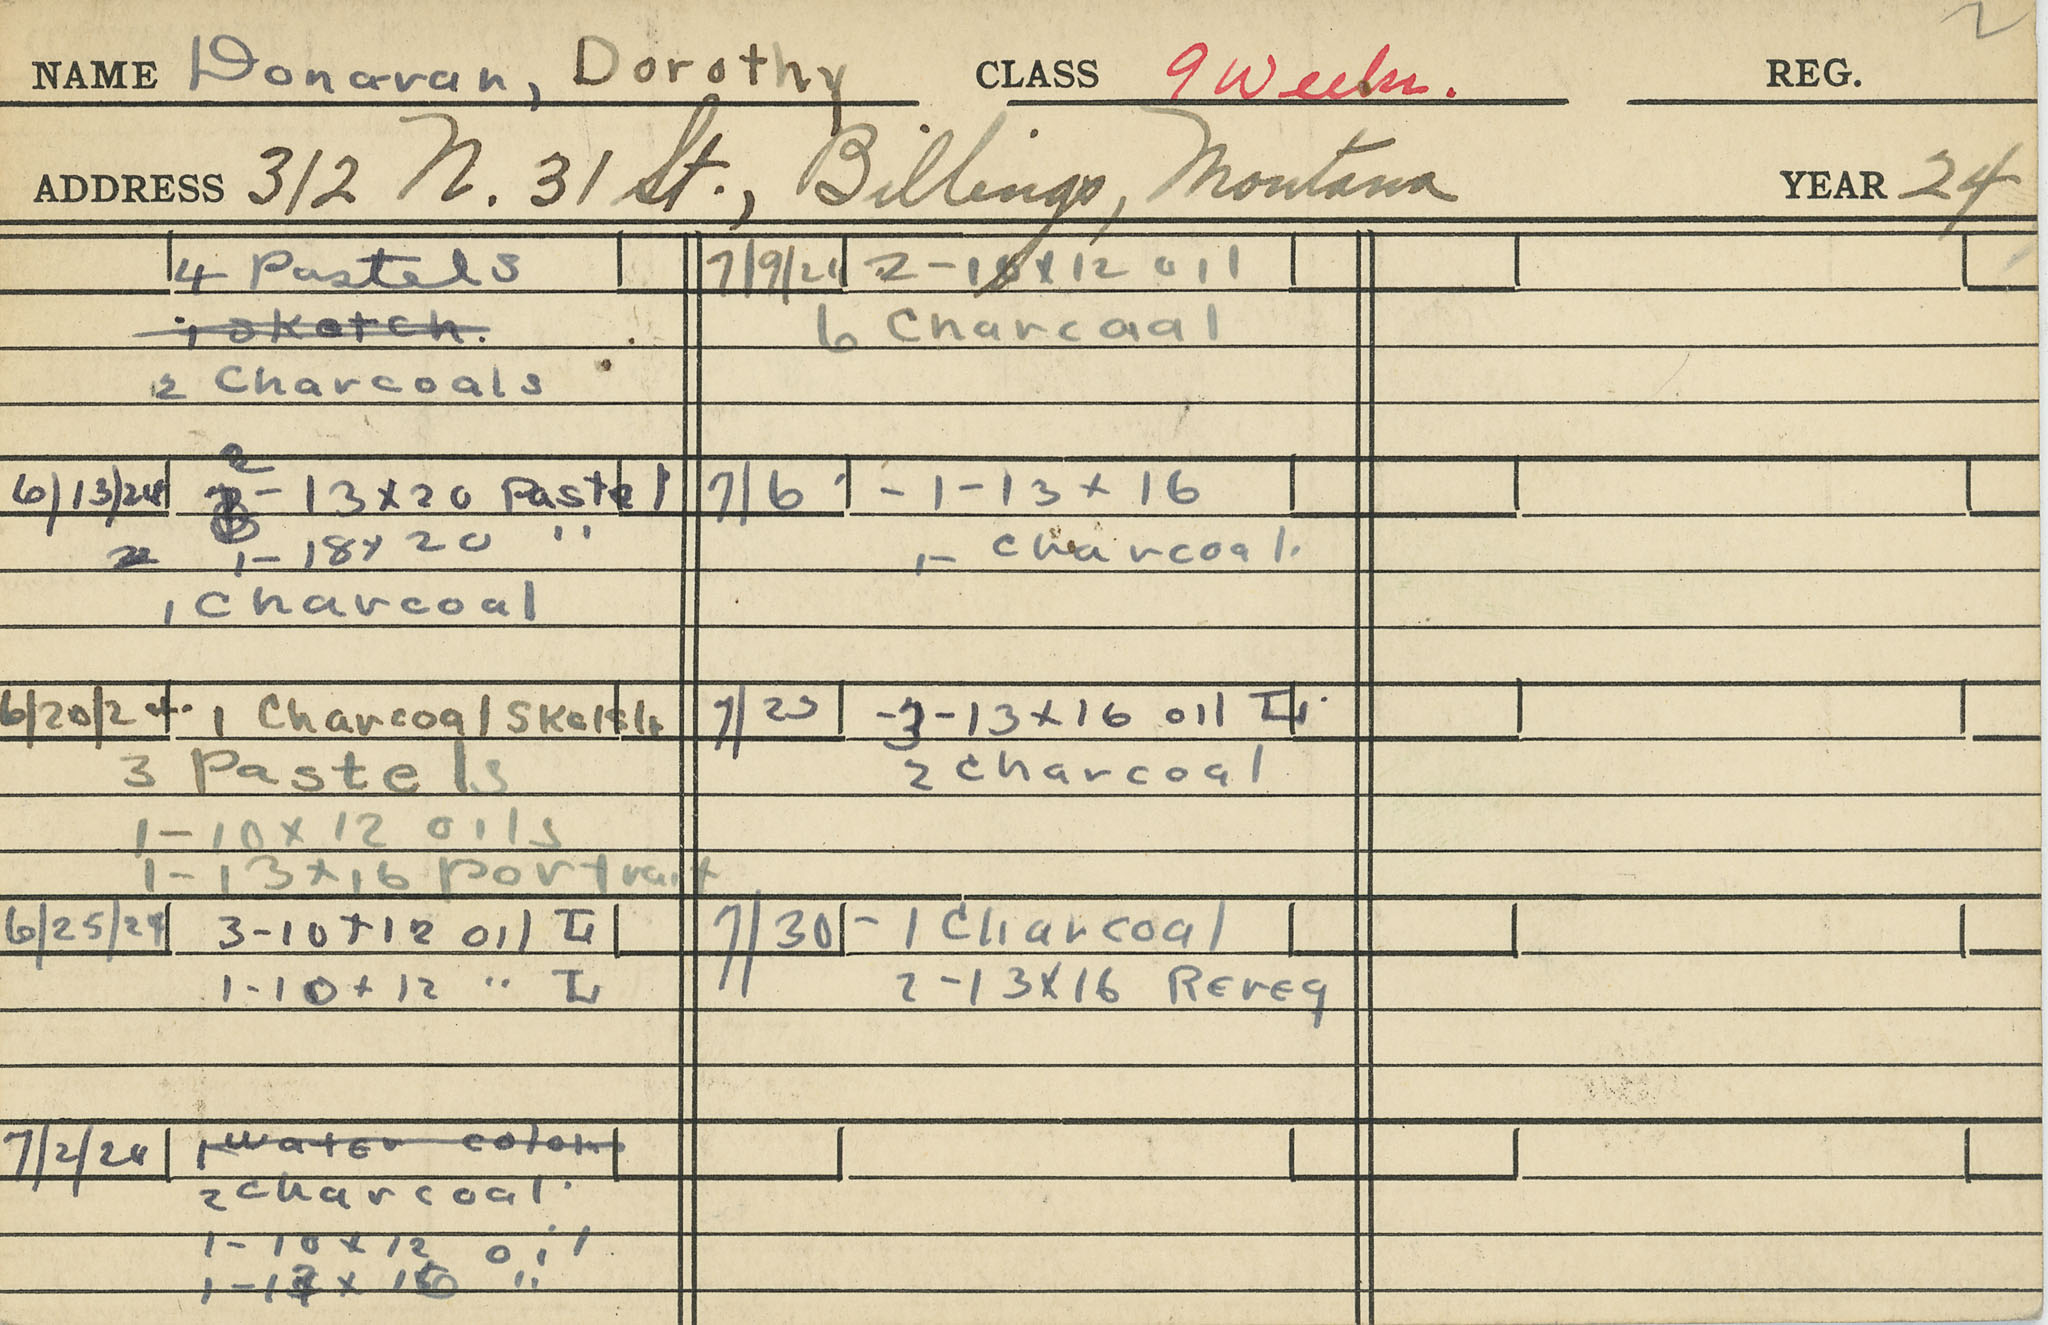 2
NAME Donavan, Dorothy CLASS 9 Weeks. REG.
ADDRESS 312 N. 31 St., Billings, Montana YEAR 24
4 Pastels
1 sketch.
2 Charcoals
6/13/24 2 - 13 x 20 Pastel
2 1 - 18 x 20 "
1 Charcoal
6/20/24. 1 Charcoal Sketch
3 Pastels
1 - 10 x 12 oils
1 - 13 x 16 portrait
6/25/24 3 - 10 x 12 oil L
1 - 10 x 12 " L
7/2/24 1 water color
2 charcoal.
1 - 10 x 12 oil
1 - 13 x 16 "
7/9/24 2 - 10 x 12 oil
6 Charcoal
7/6 - 1 - 13 x 16
1 - charcoal.
7/23 - 3 - 13 x 16 oil L.
2 charcoal
7/30 - 1 Charcoal
2 - 13 x 16 Rereg